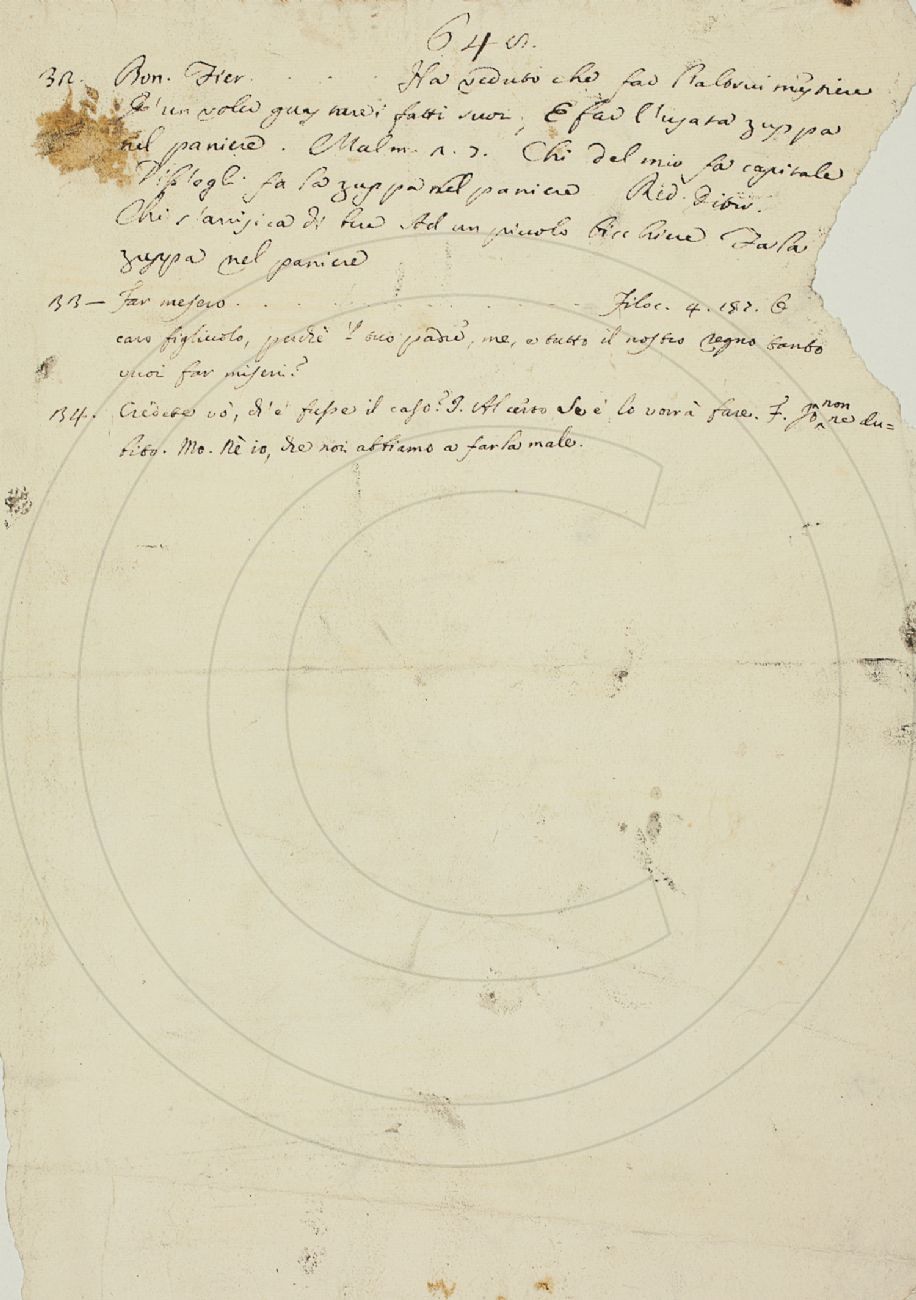 648.
32. Bon. Fier. . . . . Ha veduto che far l'altrui mestiere
E' un voler guastare i fatti suoi, E far l'usata zuppa
nel paniere. Malm. 2. 7. Chi del mio fa capitale
fa la zuppa nel paniere Red. Ditir.
Chi s'arrisica di bere Ad un piccolo bicchiere Fa la
zuppa nel paniere
33 — Far misero. . . . . . . . . . . . . Filoc. 4. 187. O
caro figliuolo, perchè 'l tuo padre, me, e tutto il nostro regno tanto
vuoi far miseri?
134. Credete vò, ch'e' fusse il caso? I. Al certo Se e' lo vorrà fare. F. Jo non ne du=
bito. Mo. Nè io, che noi abbiamo a farla male.